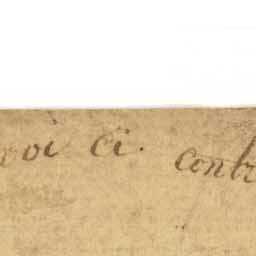 voi ci. contr